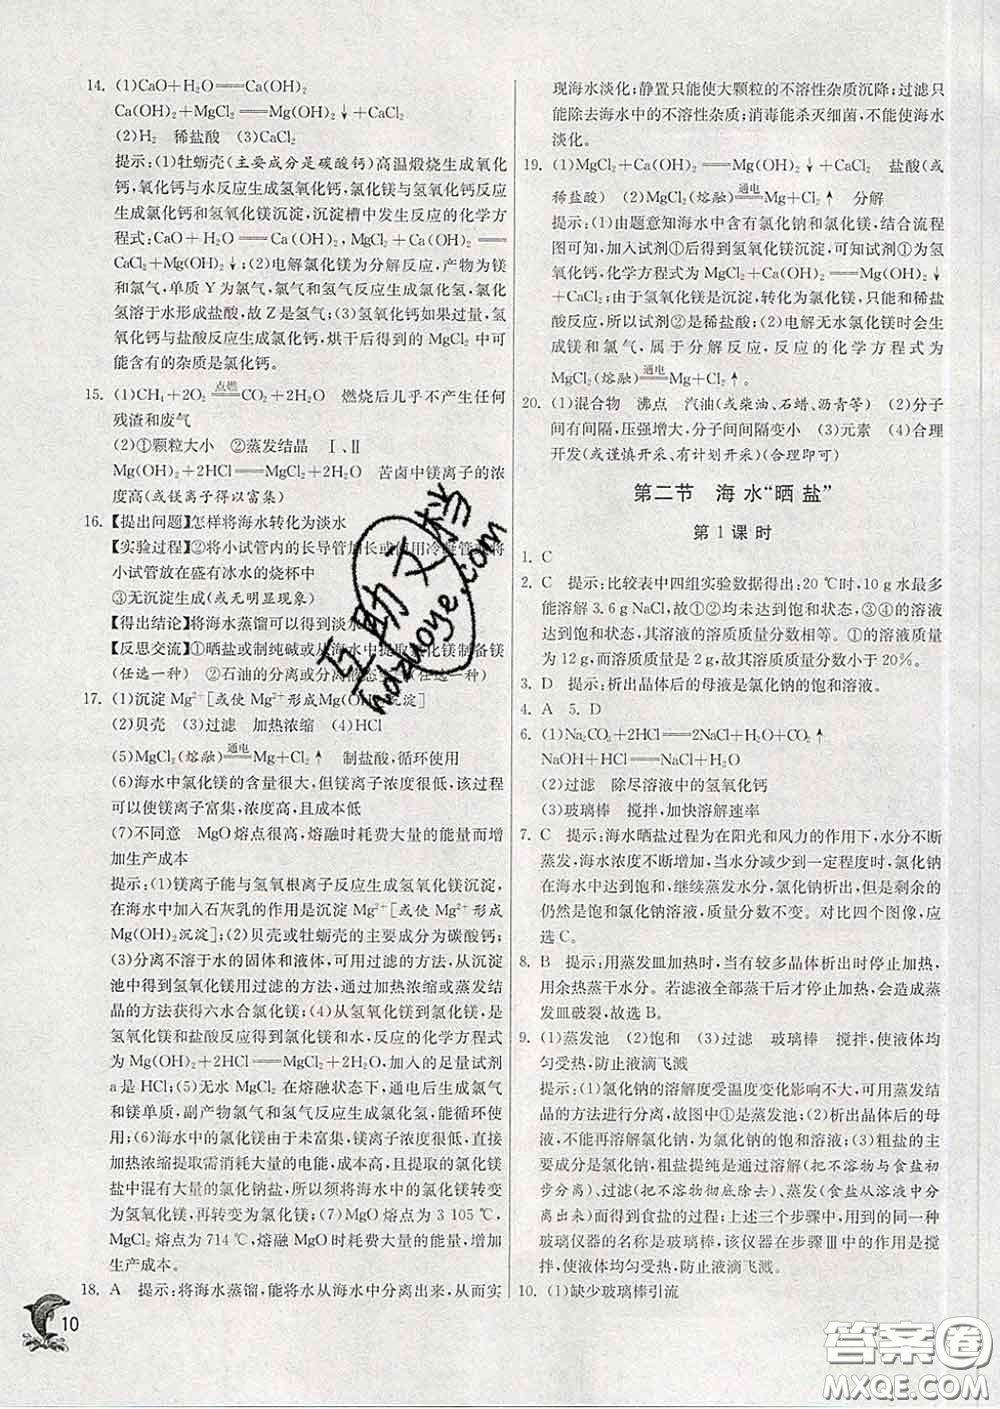 14. (1)CaO+H₂O══Ca(OH)₂
Ca(OH)₂+MgCl₂══Mg(OH)₂↓+CaCl₂
(2)H₂　稀盐酸　(3)CaCl₂
提示:(1)牡蛎壳(主要成分是碳酸钙)高温煅烧生成氧化
钙,氧化钙与水反应生成氢氧化钙,氯化镁与氢氧化钙反应
生成氯化钙和氢氧化镁沉淀,沉淀槽中发生反应的化学方
程式:CaO+H₂O══Ca(OH)₂,MgCl₂+Ca(OH)₂══
CaCl₂+Mg(OH)₂↓;(2)电解氯化镁为分解反应,产物为镁
和氯气,单质 Y 为氯气,氯气和氢气反应生成氯化氢,氯化
氢溶于水形成盐酸,故 Z 是氢气;(3)氢氧化钙如果过量,氢
氧化钙与盐酸反应生成氯化钙,烘干后得到的 MgCl₂ 中可
能含有的杂质是氯化钙。
15. (1)CH₄+2O₂ 点燃══ CO₂+2H₂O　燃烧后几乎不产生任何
残渣和废气
(2)①颗粒大小　②蒸发结晶　Ⅰ、Ⅱ
Mg(OH)₂+2HCl══MgCl₂+2H₂O　苦卤中镁离子的浓
度高(或镁离子得以富集)
16. 【提出问题】怎样将海水转化为淡水
【实验过程】②将小试管内的长导管加长或使用冷凝管或将
小试管放在盛有冰水的烧杯中
③无沉淀生成(或无明显现象)
【得出结论】将海水蒸馏可以得到淡水
【反思交流】①晒盐或制纯碱或从海水中提取氯化镁制备镁
(任选一种)　②石油的分离或分离液态空气(任选一种)
17. (1)沉淀 Mg²⁺[或使 Mg²⁺ 形成Mg(OH)₂沉淀]
(2)贝壳　(3)过滤　加热浓缩　(4)HCl
(5)MgCl₂(熔融) 通电══ Mg+Cl₂↑　制盐酸、循环使用
(6)海水中氯化镁的含量很大,但镁离子浓度很低,该过程
可以使镁离子富集,浓度高,且成本低
(7)不同意　MgO 熔点很高,熔融时耗费大量的能量而增
加生产成本
提示:(1)镁离子能与氢氧根离子反应生成氢氧化镁沉淀,
在海水中加入石灰乳的作用是沉淀 Mg²⁺[或使 Mg²⁺ 形成
Mg(OH)₂沉淀];(2)贝壳或牡蛎壳的主要成分为碳酸钙;
(3)分离不溶于水的固体和液体,可以用过滤的方法,从沉淀
池中得到氢氧化镁用过滤的方法,通过加热浓缩或蒸发结
晶的方法获得六水合氯化镁;(4)从氢氧化镁到氯化镁,是
氢氧化镁和盐酸反应得到氯化镁和水,反应的化学方程式
为 Mg(OH)₂+2HCl══MgCl₂+2H₂O,加入的足量试剂
a 是 HCl;(5)无水 MgCl₂ 在熔融状态下,通电后生成氯气
和镁单质,副产物氯气和氢气反应生成氯化氢,能循环使
用;(6)海水中的氯化镁由于未富集,镁离子浓度很低,直接
加热浓缩提取需消耗大量的电能,成本高,且提取的氯化镁
盐中混有大量的氯化钠盐,所以须将海水中的氯化镁转变
为氢氧化镁,再转变为氯化镁;(7)MgO 熔点为 3 105 ℃,
MgCl₂ 熔点为 714 ℃,熔融 MgO 时耗费大量的能量,增加
生产成本。
18. A　提示:将海水蒸馏,能将水从海水中分离出来,从而实
现海水淡化;静置只能使大颗粒的不溶性杂质沉降;过滤只
能除去海水中的不溶性杂质;消毒能杀灭细菌,不能使海水
淡化。
19. (1)MgCl₂+Ca(OH)₂══Mg(OH)₂↓+CaCl₂　盐酸(或
稀盐酸)　(2)MgCl₂(熔融) 通电══ Mg+Cl₂↑　分解
提示:(1)由题意知海水中含有氯化钠和氯化镁,结合流程
图可知,加入试剂①后得到氢氧化镁沉淀,可知试剂①为氢
氧化钙,化学方程式为 MgCl₂+Ca(OH)₂══Mg(OH)₂↓
+CaCl₂;由于氢氧化镁是沉淀,转化为氯化镁,只能和稀盐
酸反应,所以试剂②是稀盐酸;(2)电解无水氯化镁时会生
成镁和氯气,属于分解反应,反应的化学方程式为
MgCl₂(熔融) 通电══ Mg+Cl₂↑。
20. (1)混合物　沸点　汽油(或柴油、石蜡、沥青等)　(2)分子
间有间隔,压强增大,分子间间隔变小　(3)元素　(4)合理
开发(或谨慎开采、有计划开采)(合理即可)
第二节　海水“晒盐”
第 1 课时
1. C
2. C　提示:比较表中四组实验数据得出:20 ℃时,10 g 水最多
能溶解 3.6 g NaCl,故①②均未达到饱和状态,③④的溶液
达到饱和状态,其溶液的溶质质量分数相等。④所得溶液质
量为 12 g,而溶质质量是 2 g,故溶质质量分数小于 20%。
3. D　提示:析出晶体后的母液是氯化钠的饱和溶液。
4. A　5. D
6. (1)Na₂CO₃+2HCl══2NaCl+H₂O+CO₂↑
NaOH+HCl══NaCl+H₂O
(2)过滤　除尽溶液中的氢氧化钙
(3)玻璃棒　搅拌,加快溶解速率
7. C　提示:海水晒盐过程为在阳光和风力的作用下,水分不断
蒸发,海水浓度不断增加,当水分减少到一定程度时,氯化钠
在海水中达到饱和,继续蒸发水分,氯化钠析出,但是剩余的
仍然是饱和氯化钠溶液,质量分数不变。对比四个图像,应
选 C。
8. B　提示:用蒸发皿加热时,当有较多晶体析出时停止加热,
用余热蒸干水分。若滤液全部蒸干后才停止加热,会造成蒸
发皿破裂,故选 B。
9. (1)蒸发池　(2)饱和　(3)过滤　玻璃棒　搅拌,使液体均
匀受热,防止液滴飞溅
提示:(1)氯化钠的溶解度受温度变化影响不大,可用蒸发结
晶的方法进行分离,故图中①是蒸发池;(2)析出晶体后的母
液,不能再溶解氯化钠,为氯化钠的饱和溶液;(3)粗盐的主
要成分是氯化钠,粗盐提纯是通过溶解(把不溶物与食盐初
步分离)、过滤(把不溶物彻底除去)、蒸发(食盐从溶液中分
离出来)而得到食盐的过程;上述三个步骤中,都用到同一种
玻璃仪器的名称是玻璃棒,该仪器在步骤Ⅲ中的作用是搅
拌,使液体均匀受热,防止液滴飞溅。
10. (1)缺少玻璃棒引流
互助文档
hdzuoye.com
10
答案圈
MXQE.COM